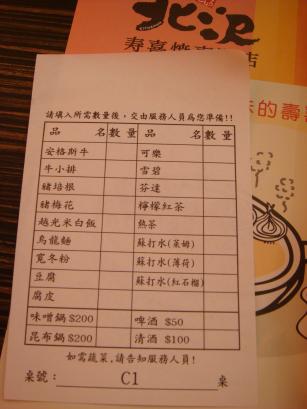 北沢
寿喜燒
店
味的壽
請填入所需數量後，交由服務人員為您準備!!
品 名 數量 品 名 數量
安格斯牛 可樂
牛小排 雪碧
豬培根 芬達
豬梅花 檸檬紅茶
越光米白飯 熱茶
烏龍麵 蘇打水(萊姆)
寬冬粉 蘇打水(薄荷)
豆腐 蘇打水(紅石榴)
腐皮
味噌鍋 $200 啤酒 $50
昆布鍋 $200 清酒 $100
如需蔬菜,請告知服務人員!
桌號: C1 桌